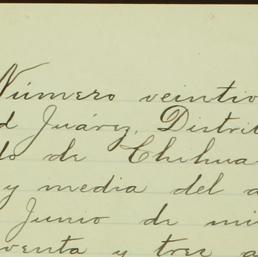 Número veintio
d Juárez, Distrit
do de Chihua
y media del d
Junio de mi
venta y tres a